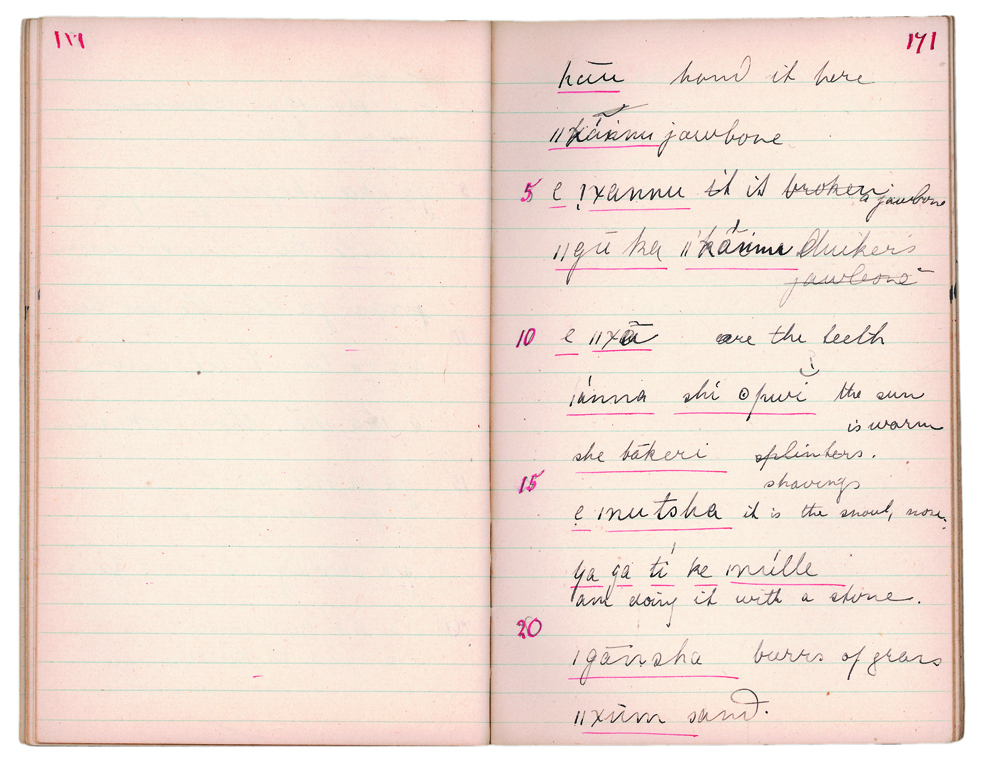 171
hãu hand it here
ǁkā́inu jawbone
5 e ǃxannu it is broken a jawbone
ǁgū ka ǁkā́inu duiker's
jawbone
10 e ǁxā are the teeth
ǀánna shi ʘpwi the sun
is warm
she bākeri splinters.
shavings
15
e ǀnutsha it is the snout, nose.
ya ga tí ke ǀnúlle
am doing it with a stone.
20
ǀgānsha burrs of grass
ǁxūm sand.